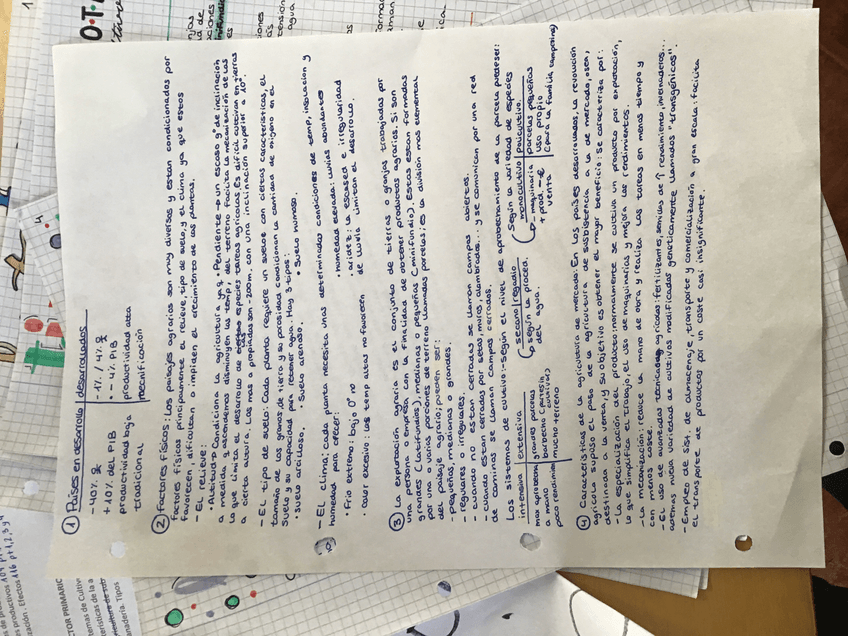 ① Países en desarrollo | desarrollados
- 40% | - 4% / 4%
+ 10% del PIB | + 4% PIB
productividad baja | productividad alta
tradicional | tecnificación
② Factores físicos: Los paisajes agrarios son muy diversos y estan condicionados por
factores físicos principalmente el relieve, tipo de suelo, y el clima ya que estos
favorecen, dificultan o impiden el crecimiento de las plantas.
- EL relieve:
• Altitud → Condiciona la agricultura ya q • Pendiente → un escaso gº de inclinación
a medida q ascendemos disminuyen las temp, del terreno facilita la mecanización de las
lo que limita el desarrollo de especies tareas agrícolas. Es difícil cultivar en tierras
a cierta altura. Las más propiadas son -200m. con una inclinación superior a 10º.
- EL tipo de suelo: Cada planta requiere un suelo con ciertas características, el
tamaño de los granos de tierra y su porosidad condicionan la cantidad de oxígeno en el
suelo y su capacidad para retener agua. Hay 3 tipos:
• suelo arcilloso. • Suelo arenoso. • Suelo humoso.
- EL clima; cada planta necesita unas determinadas condiciones de temp, insolación y
humedad para crecer:
• Frio extremo: bajo 0º no • humedad elevada: lluvias abundantes
• calor excesivo: las temp altas no favorecen • aridez: la escased e irregularidad
de lluvia limitan el desarrollo.
③ La explotación agraria es el conjunto de tierras o granjas trabajadas por
una persona o empresa con la finalidad de obtener productos agrarios. Si son
grandes (latifundios), medianas o pequeñas (minifundio). Estas estan formadas
por una o varias porciones de terreno llamadas parcelas; es la division más elemental
del paisaje agrario; pueden ser:
- pequeñas, medianas o grandes.
- regulares o irregulares.
- cuando no estan cerradas se llaman campos abiertos.
- cuando estan cerradas por setos, muros, alambradas... y se comunican por una red
de caminos se llaman campos cerrados.
Los sistemas de cultivo: - Según el nivel de aprobechamiento de la parcela puede ser:
intensiva | extensiva
max aprobecham | grandes parcelas
a menudo | barbecho (partes sin cultivar)
poco rendimien | mucho terreno
secano | regadío
↳ según la proced.
del agua.
Según la variedad de especies
monocultivo | policultivo
↳ maquinaria | parcelas pequeñas
prod. - € | uso propio
venta | (para la familia, campesina)
④ Características de la agricultura de mercado: En los países desarrollados, la revolución
agrícola supuso el paso de la agricultura de subsistencia a la de mercado, osea,
destinada a la venta, y su objetivo es obtener el mayor beneficio. Se caracteriza por:
- La especialización del producto: normalmente se cultiva un producto por explotación,
lo que simplifica el trabajo, el uso de maquinarias y mejora los rendimientos.
- La mecanización: reduce la mano de obra y realiza las tareas en menos tiempo y
con menos coste.
- EL uso de avanzadas técnicas agrícolas: fertilizantes, semillas de ↑ rendimiento, invernaderos...
ademas nueva variedad de cultivos modificados geneticamente llamados "transgénicos".
- Empleo de sist. de almacenaje, transporte y comercialización a gran escala: facilita
el transporte de productos por un coste casi insignificante.